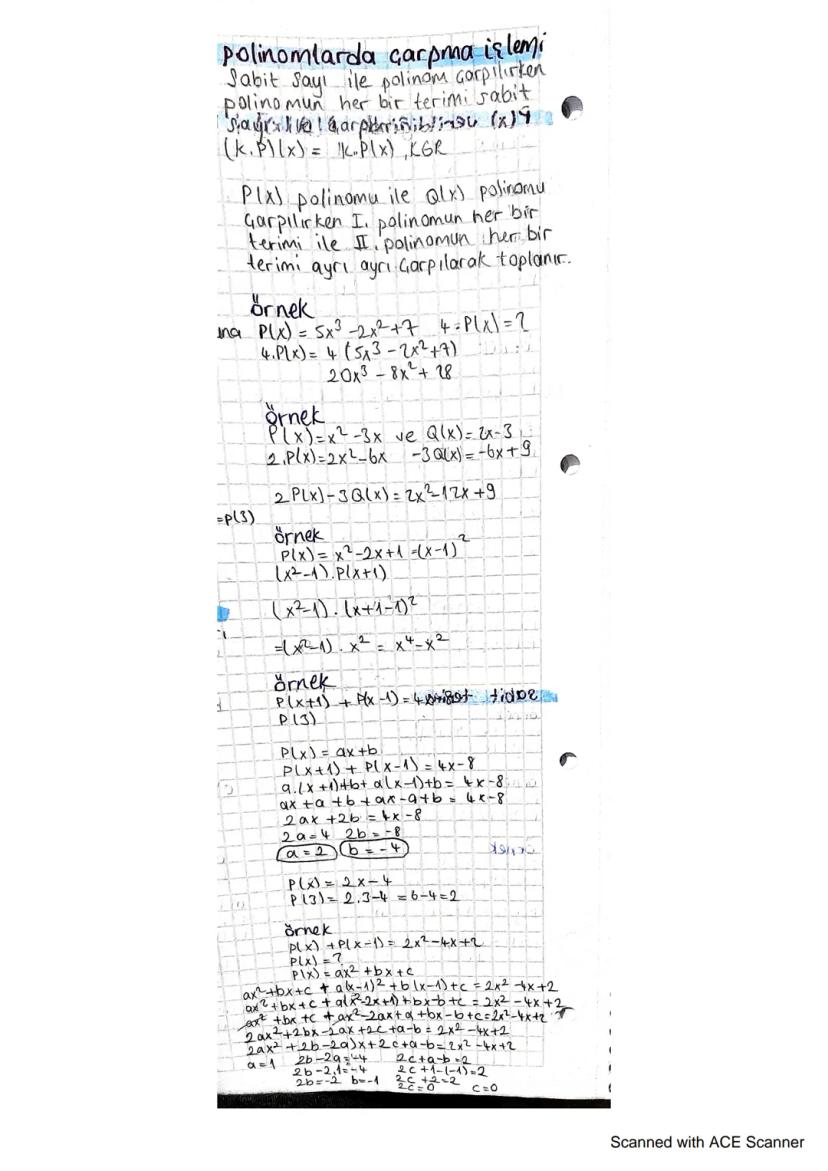 polinomlarda çarpma işlemi
Sabit sayı ile polinom çarpılırken
polinomun her bir terimi sabit
(k.P)(x) = k.P(x), KGR
P(x) polinomu ile Q(x) polinomu
çarpılırken I. polinomun her bir
terimi ile II. polinomun her bir
terimi ayrı ayrı çarpılarak toplanır.
örnek
ına P(x) = 5x³ -2x²+7 4.P(x) = ?
4.P(x) = 4 (5x³ - 2x²+7)
20x³ - 8x² + 28
örnek
P(x)=x² -3x ve Q(x)= 2x-3
2.P(x)=2x²-6x -3Q(x)=-6x+9
2P(x)-3Q(x) = 2x²-12x +9
=P(3)
örnek
P(x) = x²-2x+1 =(x-1)²
(x²-1).P(x+1)
(x²-1).(x+1-1)²
=(x²-1).x² = x⁴-x²
örnek
P(x+1) + P(x-1) = 4
P(3)
P(x) = ax+b
P(x+1) + P(x-1) = 4x-8
a.(x+1)+b+a(x-1)+b = 4x-8
ax+a+b+ax-a+b = 4x-8
2ax +2b = 4x-8
2a=4 2b = -8
a=2 b = -4
P(x) = 2x-4
P(3) = 2.3-4 = 6-4=2
örnek
P(x) + P(x-1) = 2x²-4x+2
P(x) = ?
P(x) = ax²+bx+c
ax²+bx+c + a(x-1)²+b(x-1)+c = 2x² -4x+2
ax²+bx+c + a(x²-2x+1)+bx-b+c = 2x² -4x+2
ax² +bx+c +ax²-2ax+a+bx-b+c=2x²-4x+2
2ax²+2bx-2ax+2c+a-b = 2x² -4x+2
2ax² +2b-2a)x+2c+a-b=2x² -4x+2
a=1 2b-2a=-4 2c+a-b=2
2b-2.1=-4 2c+1-(-1)=2
2b=-2 b=-1 2c+2=2
2c=0 c=0
Scanned with ACE Scanner